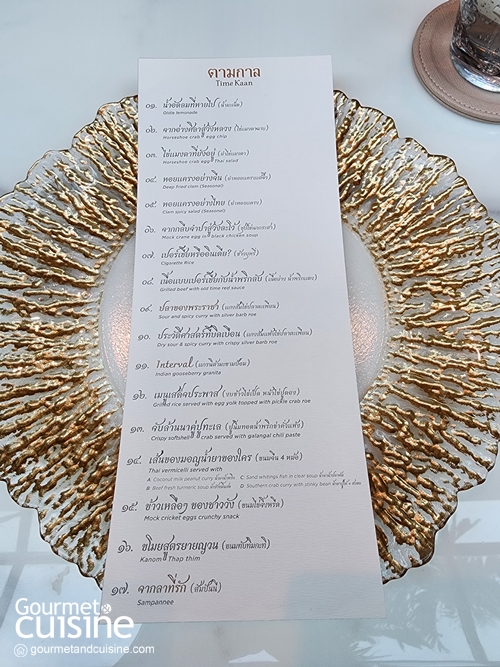 ตามกาล
Time Kaan
๐๑. น้ำอัดลมที่หายไป (น้ำมะเน็ด)
Oldie lemonade
๐๒. จากอ่างศิลาสู่วังหลวง
Horseshoe crab egg chip
๐๓. ไข่แมงดาที่มีอยู่ (ยำไข่แมงดา)
Horseshoe crab egg Thai salad
๐๔. หอยแครงอย่างจีน
Deep fried clam (Seasonal)
๐๕. หอยแครงอย่างไทย (ยำหอยแครง)
Clam spicy salad (Seasonal)
๐๖. จากกลีบจำปาสู่วังอะไร้
Mock crane egg in black chicken soup
๐๗. เปอร์เซียหรืออินเดีย? (ข้าวบุหรี่)
Cigarette Rice
๐๘. เนื้อแบบเปอร์เซียกับน้ำพริกลับ
Grilled beef with old time red sauce
๐๙. ปลาของพระราชา
Sour and spicy curry with silver barb roe
๑๐. ประวัติศาสตร์ที่บิดเบือน
Dry sour & spicy curry with crispy silver barb roe
๑๑. Interval
Indian gooseberry granita
๑๒. เมนูเสด็จประพาส
Grilled rice served with egg yolk topped with pickle crab roe
๑๓. จับล้านนาคู่ปูทะเล
Crispy softshell crab served with galangal chili paste
๑๔. เส้นของมอญน้ำยาของใคร (ขนมจีน 4 หม้อ)
Thai vermicelli served with
A. Coconut milk peanut curry C. Sand whitings fish in clear soup
B. Beef fresh turmeric soup D. Southern crab curry with stinky bean
๑๕. ข้าวเหลือๆ ของชาววัง (ขนมไข่จิ้งหรีด)
Mock cricket eggs crunchy snack
๑๖. ขโมยสูตรยายญวน (ขนมทับทิมกะทิ)
Kanom Thap thim
๑๗. จากลาที่รัก (สัมปันนี)
Sampannee
Gourmet & CUISINE
gourmetandcuisine.com